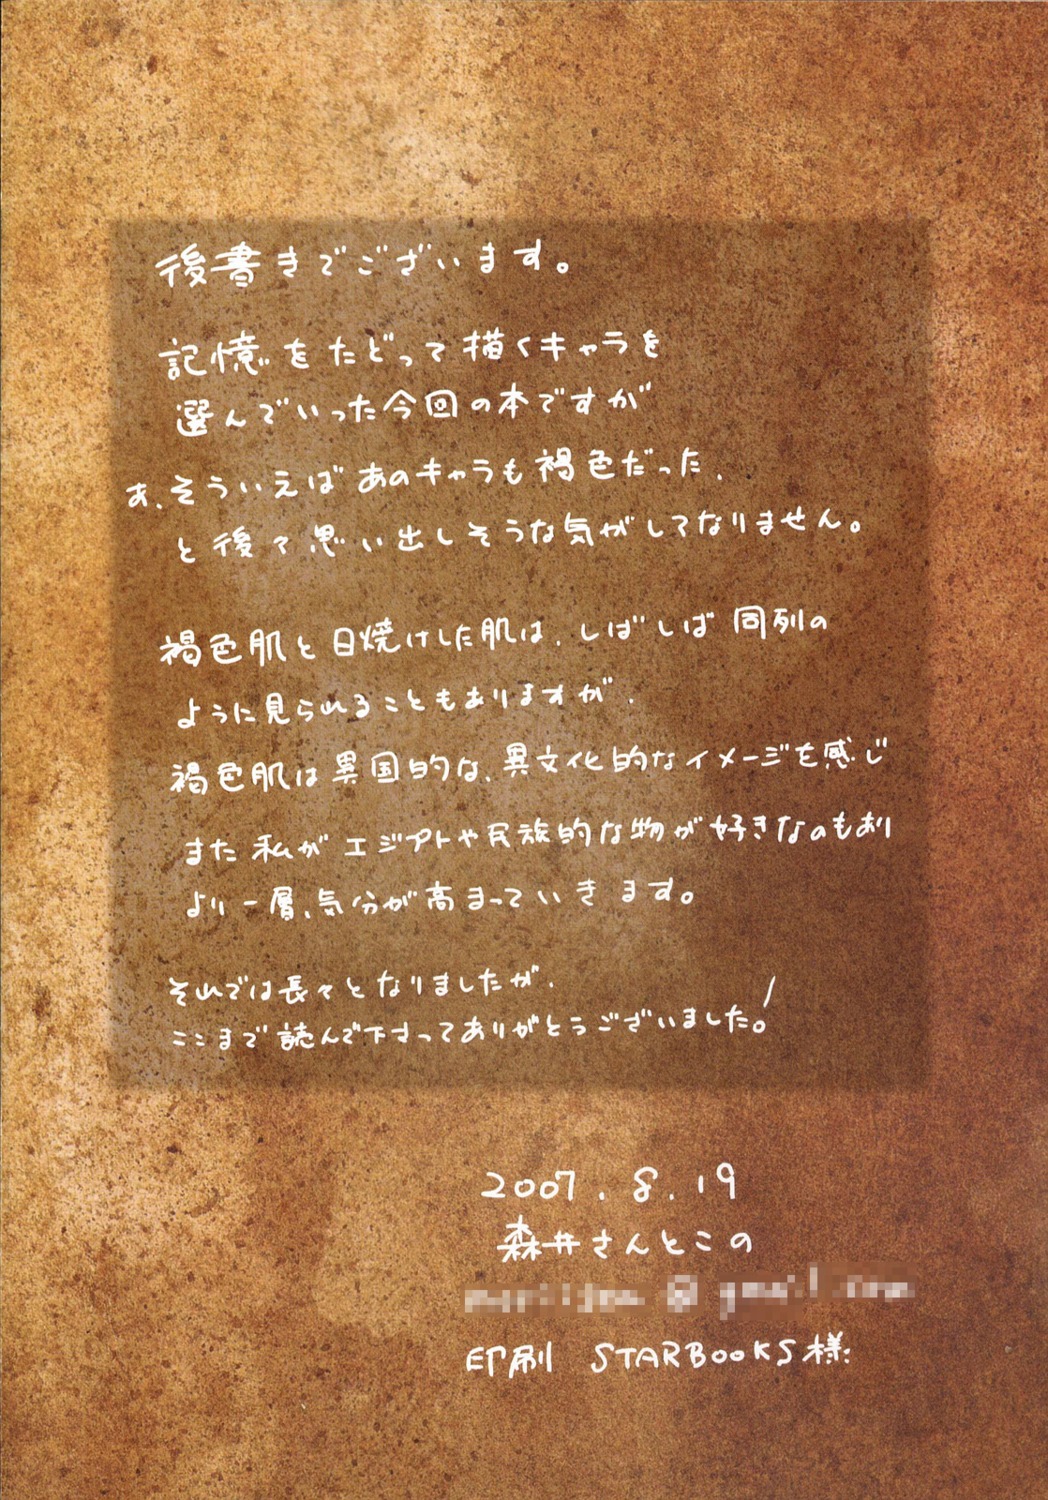 後書きでございます。
記憶をたどって描くキャラを
選んでいった今回の本ですが
あ、そういえばあのキャラも褐色だった、
と後々思い出しそうな気がしてなりません。
褐色肌と日焼けした肌は、しばしば同列の
ように見られることもありますが、
褐色肌は異国的な、異文化的なイメージを感じ
また私がエジプトや民族的な物が好きなのもあり
より一層、気分が高まっていきます。
それでは長々となりましたが、
ここまで読んで下さってありがとうございました!
2007.8.19
森井さんとこの
印刷 STARBOOKS様